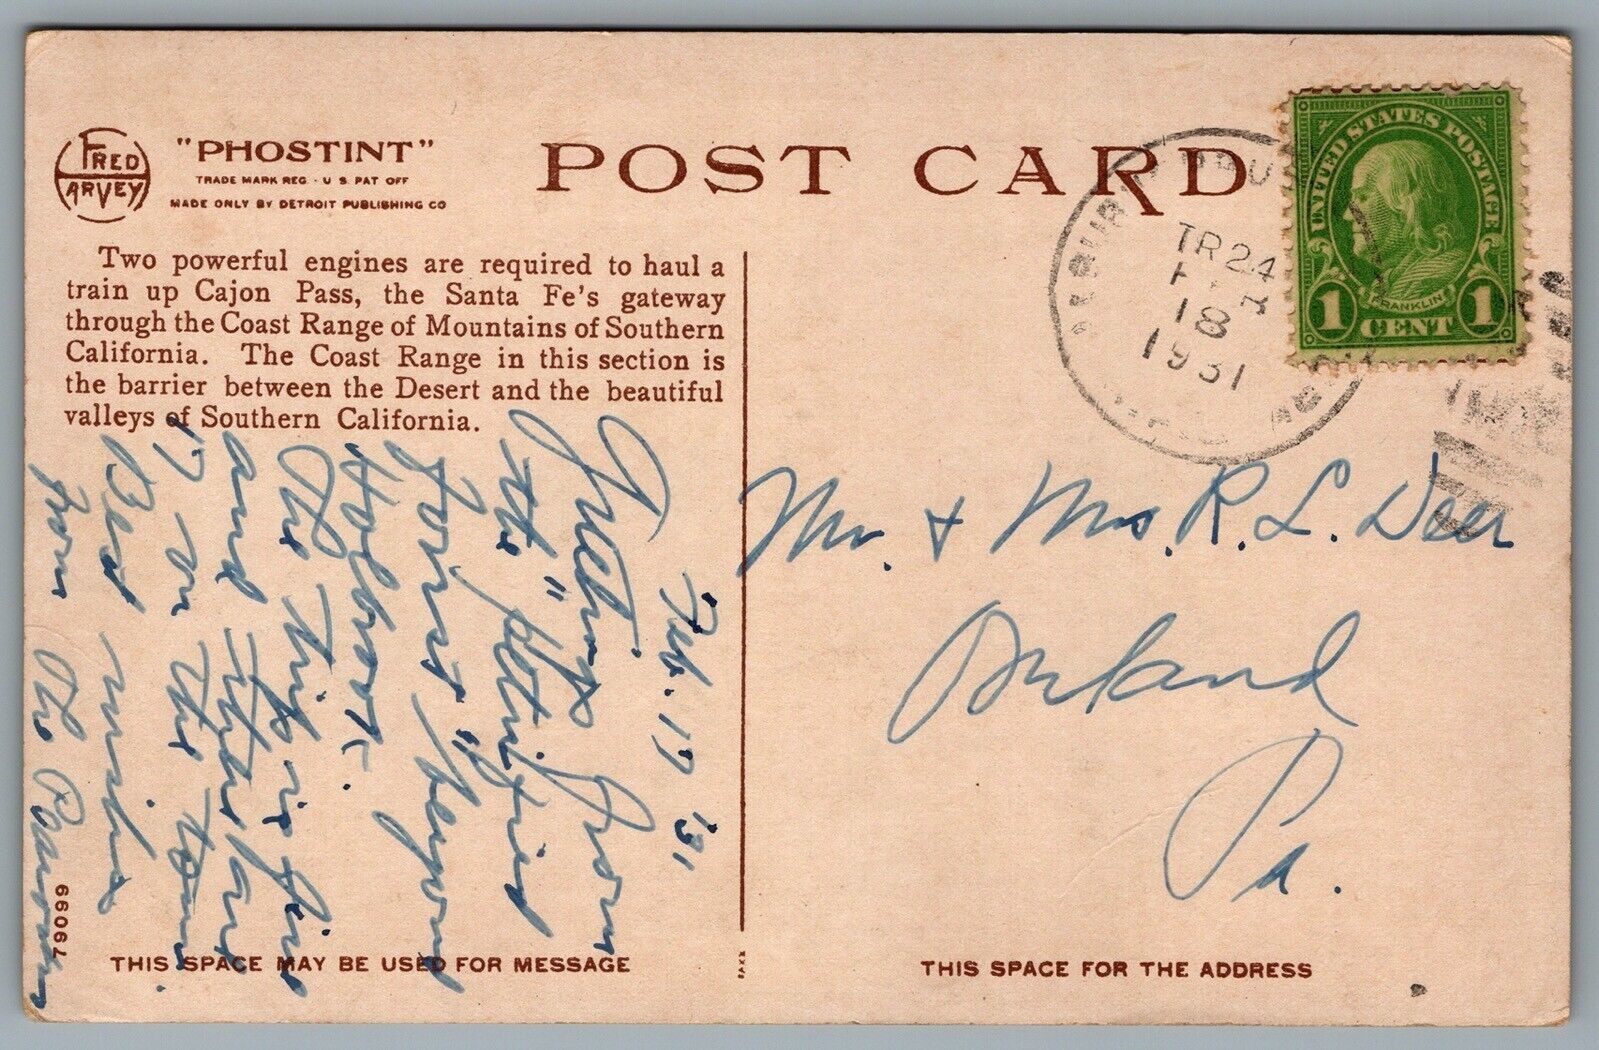 FRED HARVEY
"PHOSTINT"
TRADE MARK REG. U S PAT OFF
MADE ONLY BY DETROIT PUBLISHING CO
POST CARD
Two powerful engines are required to haul a
train up Cajon Pass, the Santa Fe's gateway
through the Coast Range of Mountains of Southern
California. The Coast Range in this section is
the barrier between the Desert and the beautiful
valleys of Southern California.
TR24
18
1931
UNITED STATES POSTAGE
FRANKLIN
1 CENT 1
Feb. 17 '31
Greetings from
the "petrified
Forest" beyond
Holbrook.
The trip is fine
and
17 on the train
Best wishes
from the
Mr. & Mrs. R. L. Deer
Oreland
Pa.
79099
THIS SPACE MAY BE USED FOR MESSAGE
THIS SPACE FOR THE ADDRESS